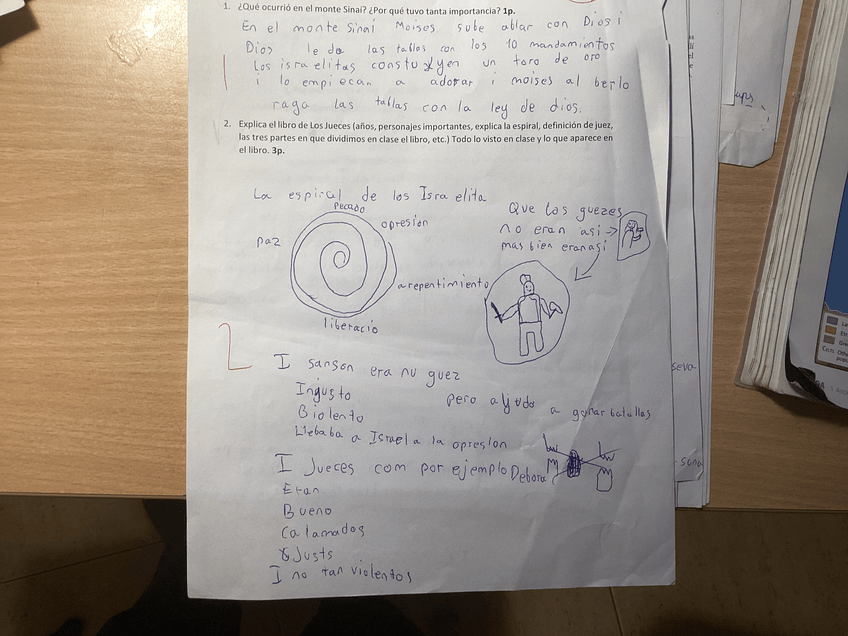 1. ¿Qué ocurrió en el monte Sinaí? ¿Por qué tuvo tanta importancia? 1p.
En el monte Sinaí Moises sube ablar con Dios i
Dios le da las tablas con los 10 mandamientos
Los israelitas construyen un toro de oro
i lo empiecan a adorar i moises al berlo
raga las tablas con la ley de dios.
1
2. Explica el libro de Los Jueces (años, personajes importantes, explica la espiral, definición de juez,
las tres partes en que dividimos en clase el libro, etc.) Todo lo visto en clase y lo que aparece en
el libro. 3p.
La espiral de los Israelita
pecado
opresion
paz
arepentimiento
liberacio
Que los guezes
no eran asi →
mas bien eran asi
2
I sanson era nu guez
Ingusto
Biolento
pero ayudo a ganar batallas
Llebaba a Israel a la opresion
I Jueces com por ejemplo Debora
Eran
Bueno
Calamados
Justs
I no tan violentos
seva